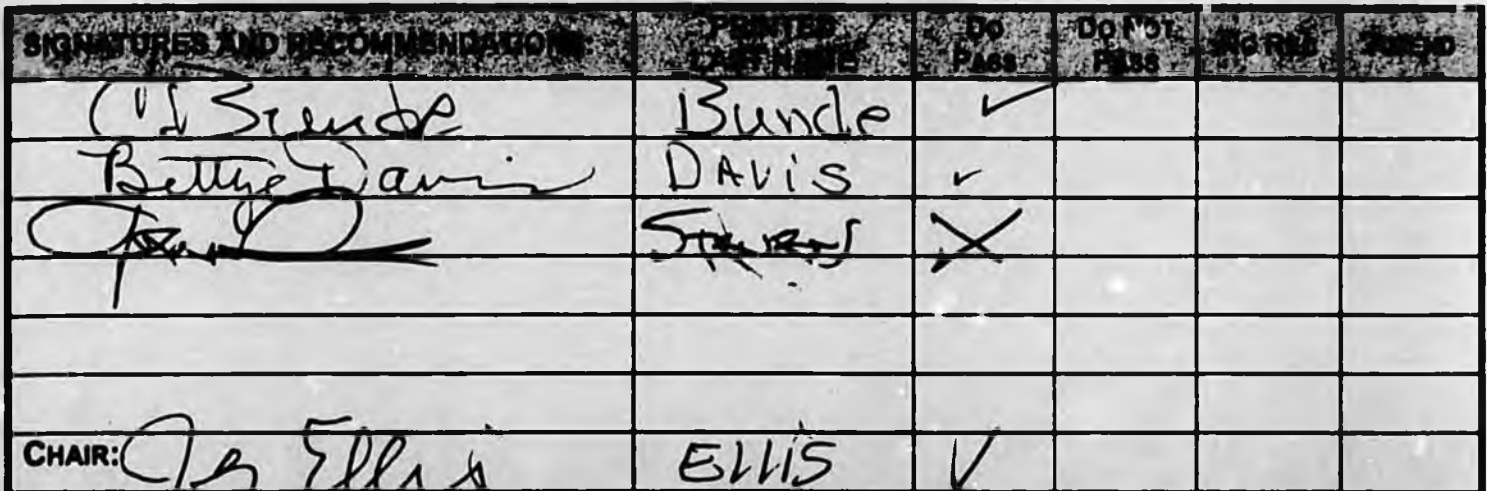 SIGNATURES AND RECOMMENDATIONS: PRINTED LAST NAME DO PASS DO NOT PASS NO REC AMEND
Bunde Bunde ✓
Bettye Davis DAVIS ✓
Stevens X
CHAIR: Ellis ELLIS ✓